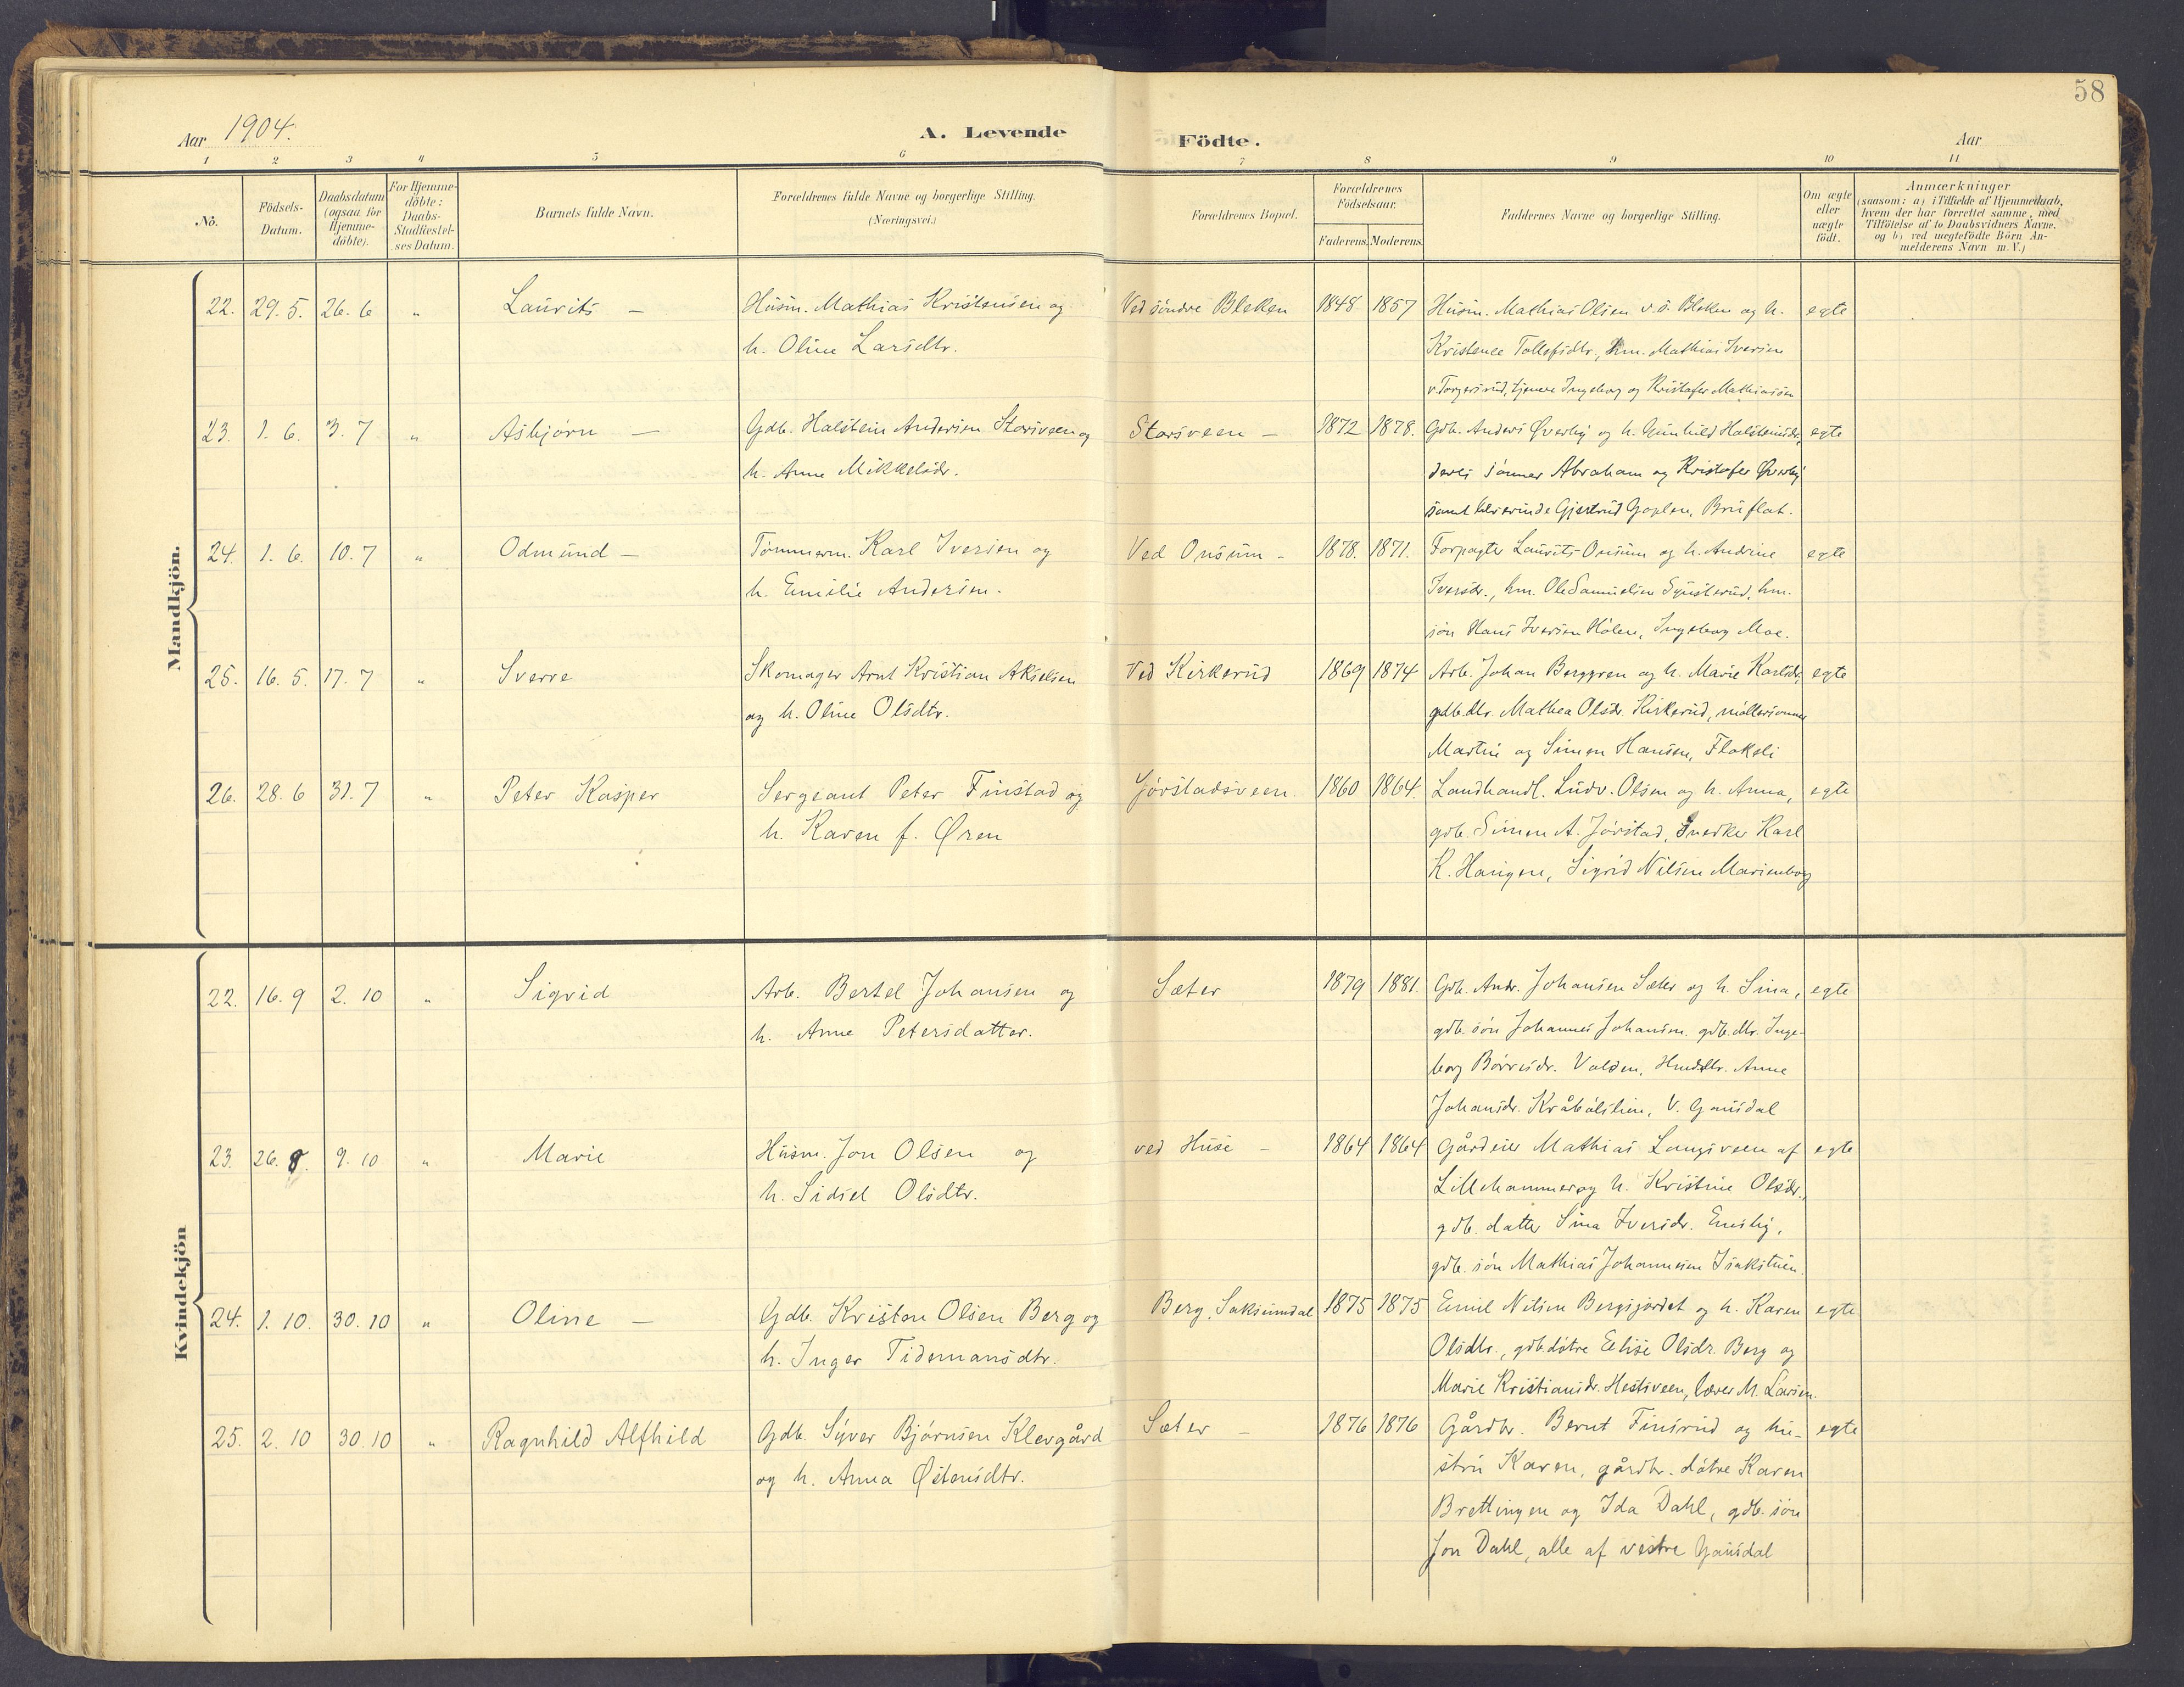 58
Aar 1904.
A. Levende Födte.
Aar
1 2 3 4 5 6 7 8 9 10 11
No.
Födsels-
Datum.
Daabsdatum
(ogsaa for
Hjemme-
döbte).
For Hjemme-
döbte:
Daabs-
Stadfæstel-
ses Datum.
Barnets fulde Navn.
Forældrenes fulde Navne og borgerlige Stilling.
(Næringsvei.)
Forældrenes Bopæl.
Forældrenes
Födselsaar.
Faderens. Moderens.
Faddernes Navne og borgerlige Stilling.
Om ægte
eller
uægte
födt.
Anmærkninger
(saasom: a) i Tilfælde af Hjemmedaab,
hvem der har forrettet samme, med
Tilföielse af to Daabsvidners Navne,
og b) ved uægtefödte Börn An-
melderens Navn m. V.)
Mandkjön.
22. 29. 5. 26. 6 " Laurits — Husm. Mathias Kristensen og Ved söndre Bleken 1848 1857 Husm. Mathias Olsen v. s. Bleken og h. egte
h. Oline Larsdtr. Kristense Tollefsdtr, hm. Mathias Iversen
v. Torgersrud, tjener Ingeborg og Kristofer Mathiassen
23. 1. 6. 3. 7 " Asbjørn — Gdb. Halstein Andersen Storsveen og Storsveen — 1872 1878. Gdb. Anders Øverby og h. Gunhild Halsteinsdr, egte
h. Anne Mikkelsdr. deres sønner Abraham og Kristofer Øverby
samt Gjertrud Goplen, Bruflat.
24. 1. 6. 10. 7 " Odmund — Tømmerm. Karl Iversen og Ved Onsum - 1878. 1871. Forpagter Laurits Onsum og h. Andrine egte
h. Emilie Andersen. Iversdr., hm. Ole Samuelsen Synsterud, hm.
søn Hans Iversen Holen, Ingeborg Moe.
25. 16. 5. 17. 7 " Sverre Skomager Arnt Kristian Akselsen Ved Kirkerud 1869 1874 Arb. Johan Berggren og h. Marie Karlsdr, egte
og h. Oline Olsdtr. gdb.dtr. Mathea Olsdr. Kirkerud, møllersønner
Martin og Simen Hansen, Flakeli
26. 28. 6 31. 7 " Peter Kasper Sergeant Peter Finstad og Jørstadsveen. 1860 1864. Landhandl. Ludv. Olsen og h. Anna, egte
h. Karen f. Øren gdb. Simen A. Jørstad, Snedker Karl
K. Haugen, Sigrid Nilsen Marienborg
Kvindekjön
22. 16. 9 2. 10 " Sigrid Arb. Bertel Johansen og Sæter 1879 1881. Gdb. Andr. Johansen Sæter og h. Sina, egte
h. Anne Petersdatter. gdb. søn Johannes Johansen. gdb.dtr. Inge-
borg Børresdr. Volden, Anne
Johansdr. Kråbølslien, V. Gausdal
23. 26. 8. 9. 10 " Marie Husm. Jon Olsen og ved Huse — 1864 1864 Gårdeier Mathias Langsveen af egte
h. Sidsel Olsdtr. Lillehammer og h. Kristine Olsdr.,
gdb. datter Sina Iversdr. Ensby,
gdb. søn Mathias Johannesen Isakstuen.
24. 1. 10. 30. 10 " Oline — Gdb. Kristen Olsen Berg og Berg, Saksumdal 1875 1875 Emil Nilsen Bergsjordet og h. Karen egte
h. Inger Tidemansdtr. Olsdtr., gdb.døtre Elise Olsdr. Berg og
Marie Kristiansdr. Hestsveen, lærer M. Larsen.
25. 2. 10 30. 10 " Ragnhild Alfhild Gdb. Syver Bjørnsen Klevgård Sæter — 1876 1876 Gårdbr. Bernt Finsrud og hu- egte
og h. Anna Østensdtr. stru Karen, gårdbr. døtre Karen
Brettingen og Ida Dahl, gdb. søn
Jon Dahl, alle af vestre Gausdal